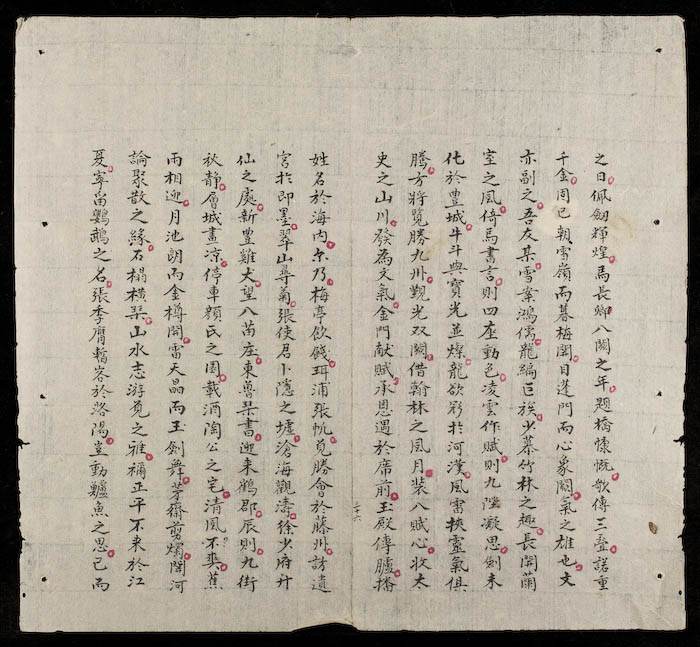 之日佩劍輝煌馬長卿八關之年題橋慷慨歌傳三疊諾重
千金周已朝雪嶺而暮梅關目蓬門而心象闕氣之雄也文
亦副之吾友某雪案鴻儒龍編巨族少慕竹林之趣長開蘭
室之風倚馬書言則四座動色凌雲作賦則九陛凝思劍未
化於豐城牛斗與寶光並燦龍欲於河漢風雷挾靈氣俱
騰方將覽勝九州觀光双闕借翰林之風月裝八賦心收太
史之山川發為文氣金門献賦承恩遇於席前玉殿傳臚播
姓名於海內尔乃梅亭飲餞珥浦張帆覓勝會於藤州訪遺
宮於即墨翠山尋菊張使君卜隱之墟滄海觀濤徐少府升
仙之處新豐雞犬望八苗庄東魯琹書迎来鶴郡辰則九街
秋靜層城畫凉停車顧氏之園載酒陶公之宅清風不爽蕉
雨相迎月池朗而金樽開雷天晶而玉劍舞茅齋剪燭開河
論聚散之緣石榻橫琹山水志游覓之雅禰正平不来於江
夏寧畱鸚鵡之名張季鷹暫客於洛陽豈動鱸魚之思已而